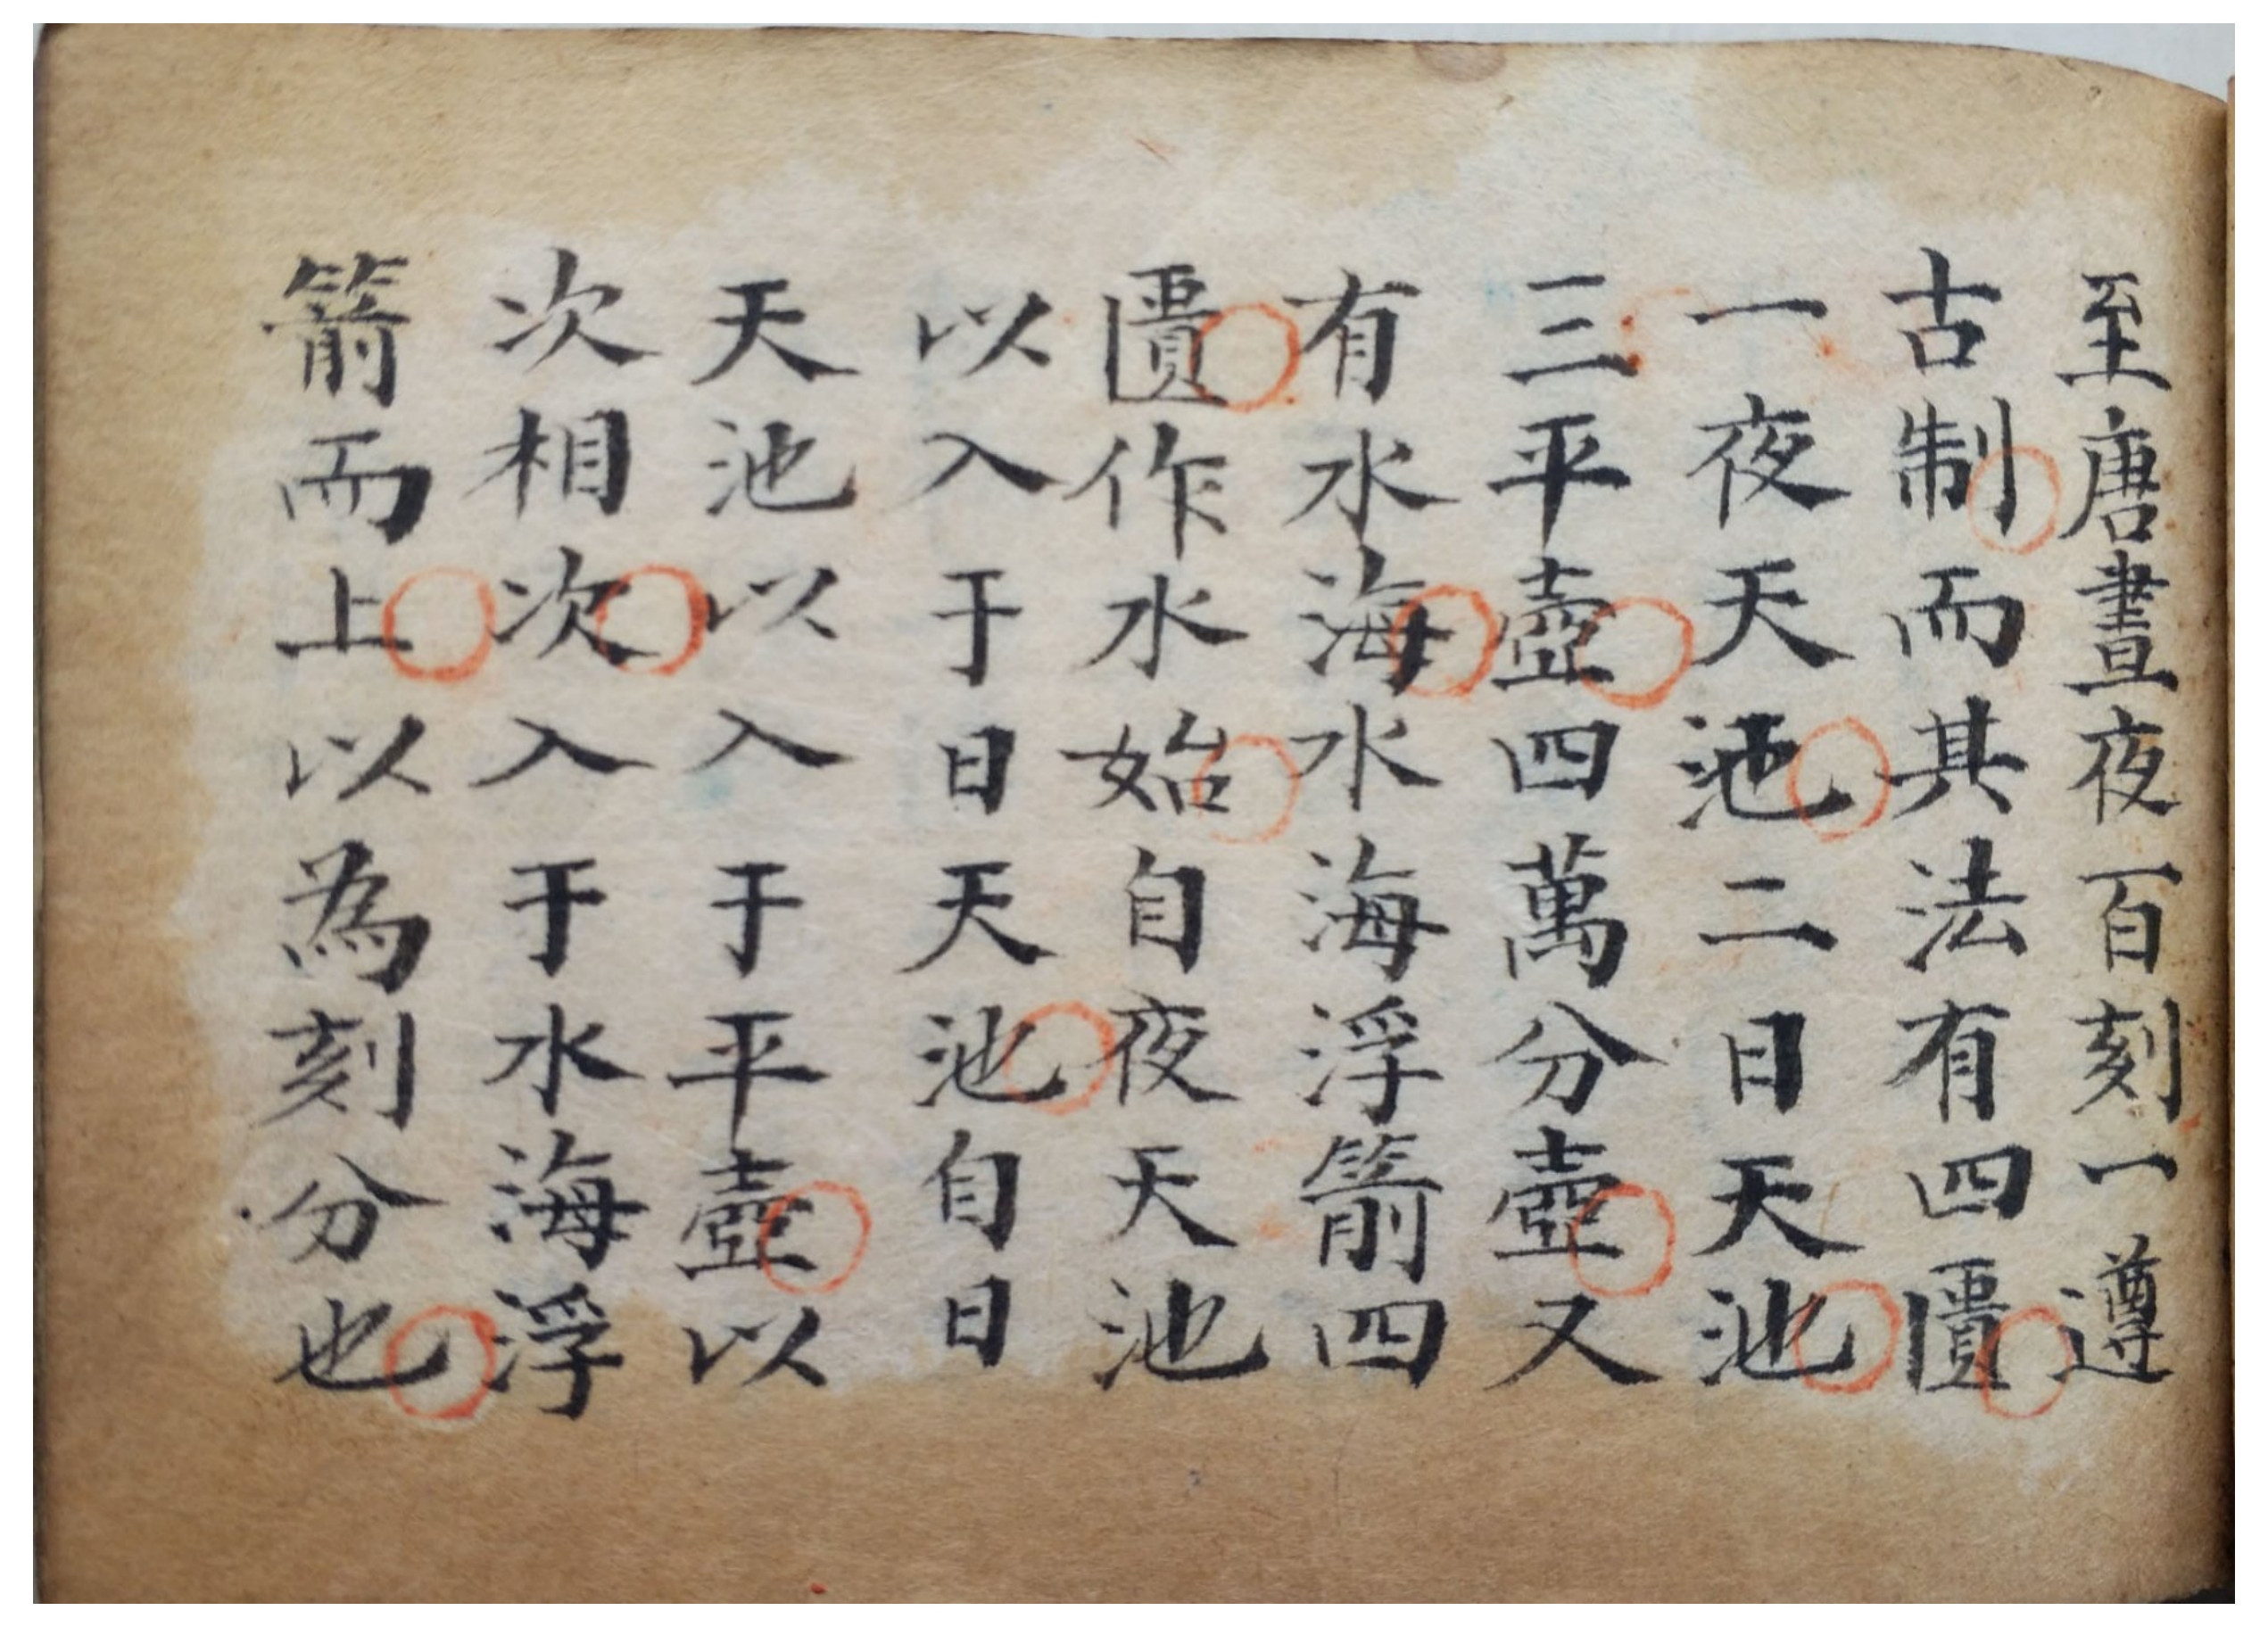 至唐晝夜百刻一遵
古制而其法有四匱
一夜天池二日天池
三平壺四萬分壺又
有水海水海浮箭四
匱作水始自夜天池
以入于日天池自日
天池以入于平壺以
次相次入于水海浮
箭而上以為刻分也